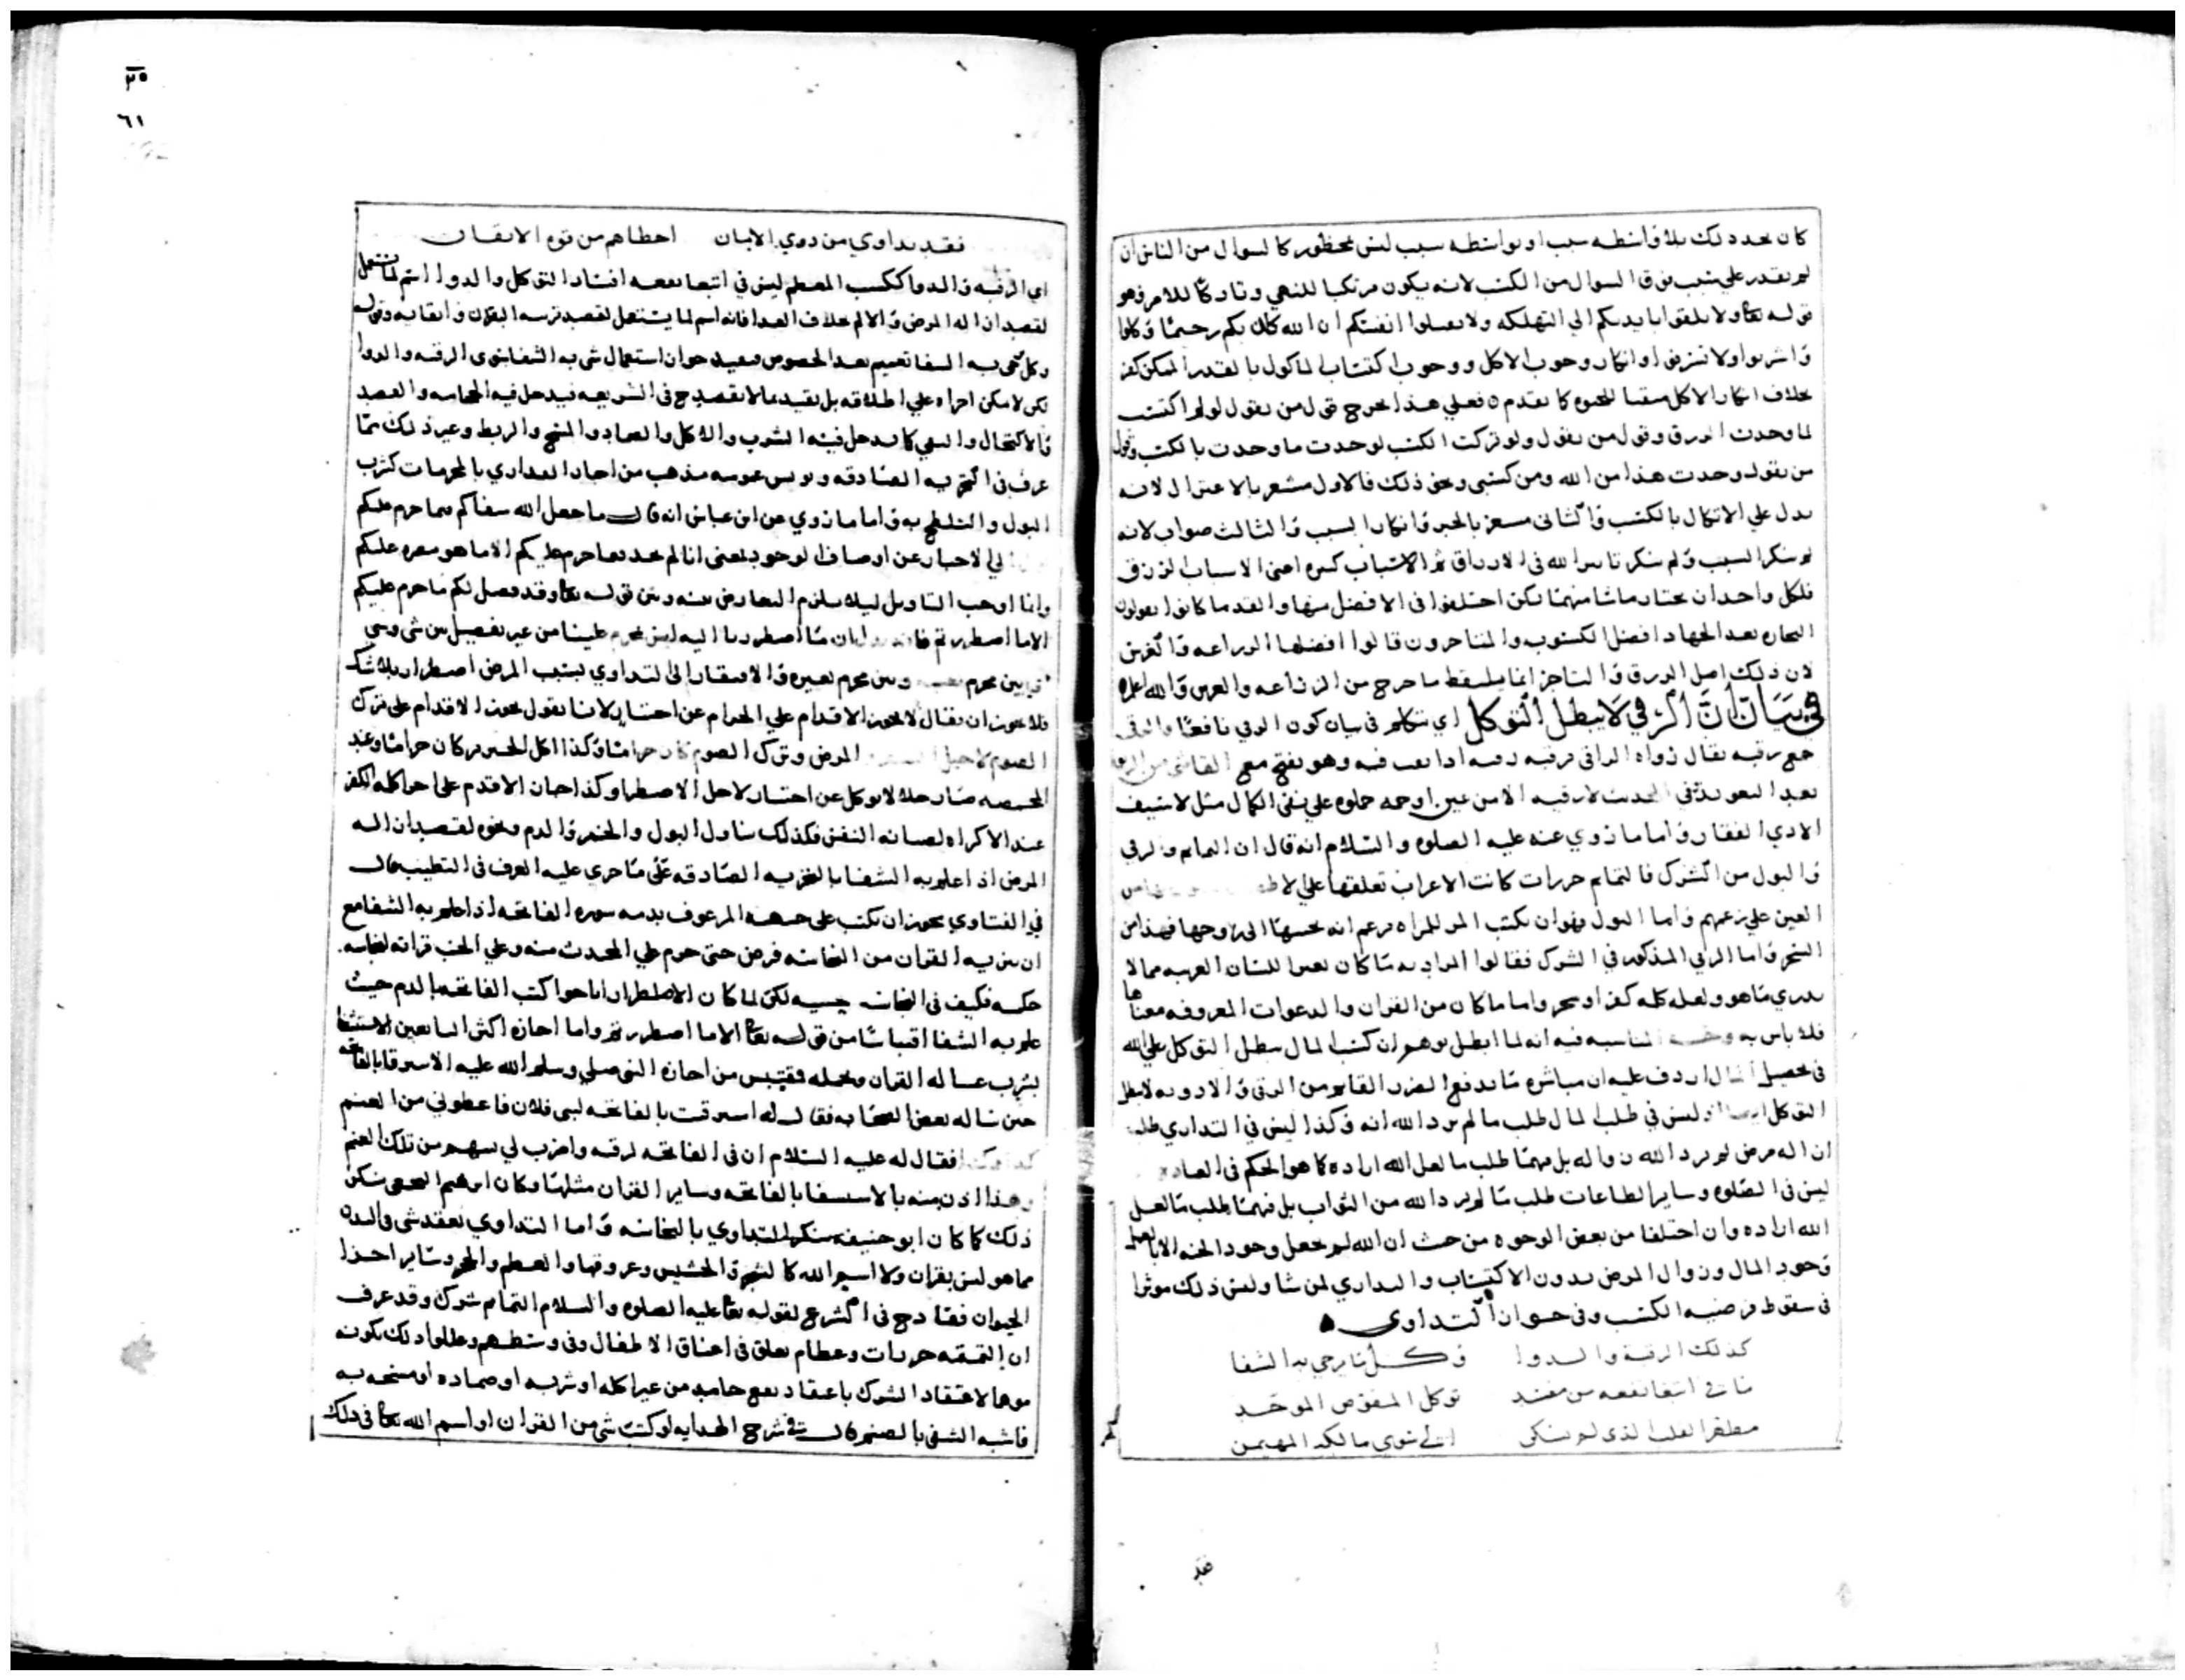 كان بعد ذلك بلا واسطه سبب او بواسطه سبب ليس بمحظور كالسوال من الناس ان
لم يقدر علي سبب فوق السوال من الكسب لانه يكون مرتكبا للنهي وتاركا للامر وهو
قوله تعا ولا تلقوا بايديكم الي التهلكه ولا تقتلوا انفسكم ان الله كان بكم رحيما وكلوا
واشربوا ولا تسرفوا وانكار وجوب الاكل ووجوب اكتساب الماكول بالقدر الممكن كفر
بخلاف انكار الاكل كما تقدم فعلي هذا يخرج قول من يقول لو لم اكتسب
لما وجدت الرزق وقول من يقول ولو تركت الكسب لوجدت ما وجدت بالكسب وقول
من يقول وجدت هذا من الله ومن كسبي ونحو ذلك فالاول مشعر بالاعتزال لانه
يدل علي الاتكال بالكسب والثاني مشعر بالجبر وانكار السبب والثالث صواب لانه
لم ينكر السبب ولم ينكر تاثير الله في الارزاق ثم الاسباب كثيره اعني الاسباب الرزق
فلكل واحد ان يختار ماشا منهما لكن اختلفوا في الافضل منها والقدما كانوا يقولون
التجاره بعد الجهاد افضل الكسوب والمتاخرون قالوا افضلها الزراعه والغرس
لان ذلك اصل الرزق والتاجر انما يلتقط ما خرج من الزراعه والغرس والله اعلم
في بيان ان الرقي لا يبطل التوكل اي نتكلم في بيان كون الرقي نافعا والرقي
جمع رقيه يقال رواه الراقي رقيه رقيه اذا نفث فيه وهو بفتح مع القاف من
بعد التعويذ في الحديث لا رقيه الا من عين او حمه حملوه علي نفي الكمال مثل لا سيف
الا ذي الفقار واما ما روي عنه عليه الصلوه والسلام انه قال ان التمايم والرقي
والتول من الشرك فالتمايم خرزات كانت الاعراب تعلقها علي
العين علي زعمهم واما التول فهو ان يكتب المرء للمراه يزعم انه يحببها الي زوجها فهذا من
السحر واما الرقي المذكور في الشرك فقالوا المراد به ما كان بغير اللسان العربيه مما لا
يدري ما هو ولعله كلمه كفر او سحر واما ما كان من القران والدعوات المعروفه معناها
فلا باس به المناسبه فيه انه لما ابطل توهم ان كسب المال يبطل التوكل علي الله
في تحصيل المال اردف عليه ان مباشره ما يدفع الضرر القايم من الرقي والادويه لا يبطل
التوكل وليس في طلب المال طلب ما لم يرد الله انه وكذا ليس في التداوي طلب
ازاله مرض لم يرد الله زواله بل فيهما طلب ما لعل الله اراده كما هو الحكم في العاده
ليس في الصلوه وساير الطاعات طلب ما لم يرد الله من الثواب بل فيهما طلب ما لعل
الله اراده وان اختلفا من بعض الوجوه من حيث ان الله لم يجعل وجود الجنه الا بالعمل
وجود المال وزوال المرض بدون الاكتساب والتداوي لمن شا وليس ذلك موثرا
في سقوط فرضيه الكسب وفي جواز التداوي
كذلك الرقية والدوا وكل ما يرجي به الشفا
ما في ابتغا نفعه من مفسد توكل المفوض الموحد
مطهر القلب الذي لم يسكن الي سوي مالكه المهيمن
فقد
٣٥
٦١
فقد يداوي من ذوي الايمان احظاهم من قوه الايقان
اي الرقيه والدوا ككسب المطعم ليس في ابتغا نفعه افساد التوكل والدوا اسم لما يستعمل
لقصد ازاله المرض والالم بخلاف الغذا فانه اسم لما يستعمل لقصد تربيه البدن وابقايه وقوله
وكل يرجي به الشفا تعميم بعد الخصوص مفيد جواز استعمال شي به الشفا سوي الرقيه والدوا
لكن لا يمكن اجراه علي اطلاقه بل بقيد بما لا يقدح في الشريعه فيدخل فيه الحجامه والفصد
والاكتحال والسعي كما يدخل فيه الشرب والاكل والضماد والمسح والربط وغير ذلك مما
عرف في التجربه الصادقه ويونس عمومه مذهب من اجاز التداوي بالمحرمات كشرب
البول والتلطخ به واما ما روي عن ابن عباس انه قال ما جعل الله شفاكم فيما حرم عليكم
الي الاخبار عن اوصاف الوجود بمعني انا لم نجد فيما حرم عليكم الا ما هو مضره عليكم
وانما اوجب التاويل ليلا يلزم التعارض بينه وبين قوله تعا وقد فصل لكم ما حرم عليكم
الا ما اضطررتم ان ما اضطررنا اليه ليس بمحرم علينا من غير تفصيل بين شي وشي
بين محرم وبين محرم لغيره والافتقار الي التداوي بسبب المرض اضطرار بلا شك
فلا يجوز ان يقال لا يجوز الاقدام علي الحرام عن اختيار لانا نقول يجوز الاقدام علي ترك
الصوم لاجل المرض وترك الصوم كان حراما وكذا اكل الخنزير كان حراما وعند
المخمصه صار حلالا يوكل عن اختيار لاجل الاضطرار وكذا جاز الاقدام علي اجرا كلمه الكفر
عند الاكراه لصيانه النفس فكذلك تناول البول والخمر والدم ونحوه لقصد ازاله
المرض اذا علم به الشفا بالتجربه الصادقه علي ما جري عليه العرف في التطبيب قال
في الفتاوي يجوز ان يكتب علي جبهه المرعوف بدمه سوره الفاتحه اذا علم به الشفا مع
ان تنزيه القران من النجاسه فرض حتي حرم علي المحدث مسه وعلي الجنب قراته لنجاسه
حكميه فكيف في النجاسه لكن لما كان الاضطرار اباحوا كتب الفاتحه بالدم حيث
علم به الشفا اقتباسا من قوله تعا الا ما اضطررتم واما اجازه اكثر التابعين الاستشفا
بشرب غساله القران ومحله فمقتبس من اجازه النبي صلي وسلم الله عليه الاسترقا بالفاتحه
حين ساله بعض الصحابه فقال له استرقيت بالفاتحه لبني فلان فاعطوني من الغنم
كذا وكذا فقال له عليه السلام ان في الفاتحه لرقيه واضرب لي بسهم من تلك الغنم
وهذا اذن منه بالاستشفا بالفاتحه وساير القران مثلها وكان ابرهيم النخعي ينكر
ذلك كما كان ابو حنيفه ينكر التداوي بالنجاسه واما التداوي بعقد شي في اليد
مما هو ليس بقران ولا اسم الله كالشجر والحشيش وعروقها والعظم والحجر وساير اجزا
الحيوان فقادح في الشرع لقوله تعا عليه الصلوه والسلام التمايم شرك وقد عرف
ان التميمه خرزات وعظام يعلق في اعناق الاطفال وفي وسطهم وعللوا ذلك بكونه
موهما لاعتقاد الشرك باعتقاد نفع جامد من غير اكله او شربه او ضماده او مسحه به
فاشبه التشفي بالصنم قال في شرح الهدايه لو كتب شي من القران او اسم الله تعا في ذلك